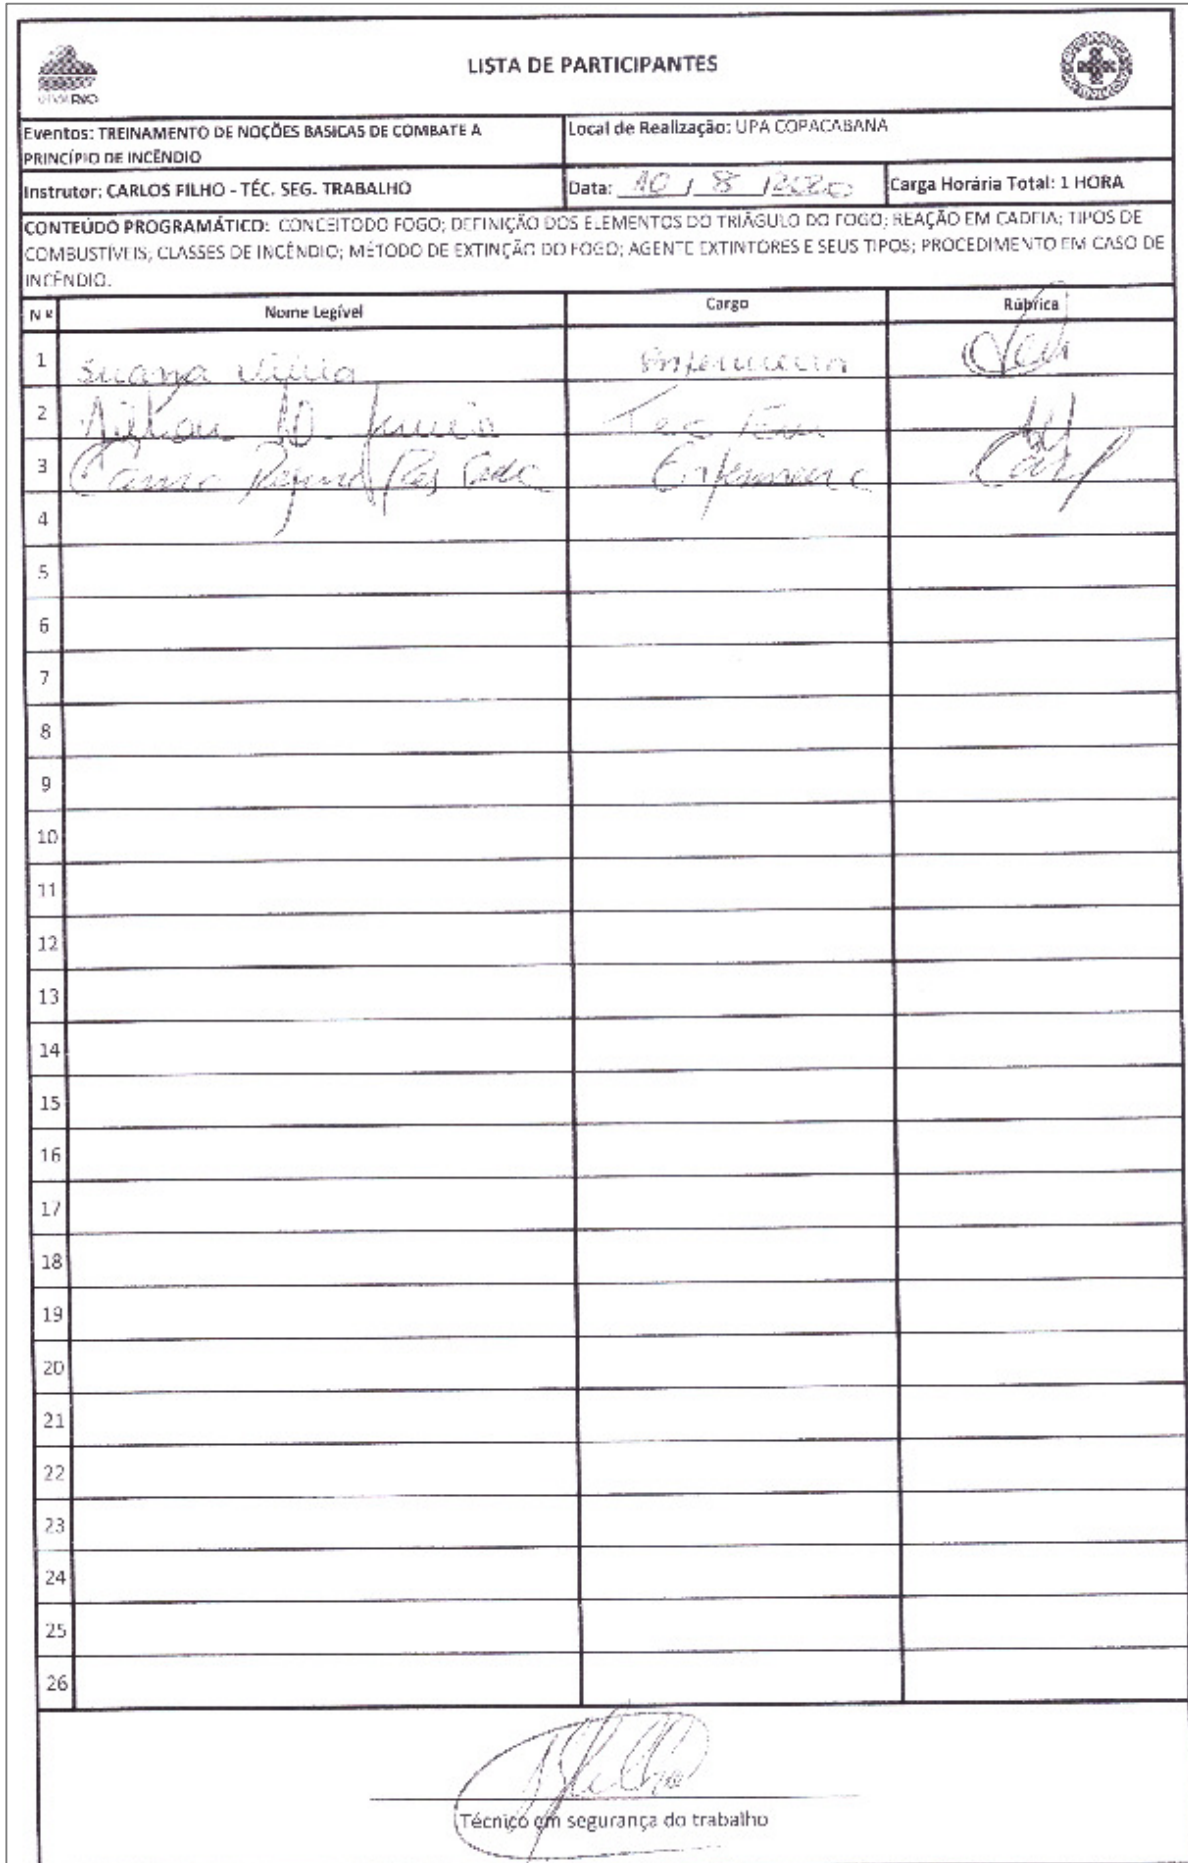 VIVARIO
LISTA DE PARTICIPANTES
Eventos: TREINAMENTO DE NOÇÕES BASICAS DE COMBATE A
PRINCÍPIO DE INCÊNDIO
Local de Realização: UPA COPACABANA
Instrutor: CARLOS FILHO - TÉC. SEG. TRABALHO
Data: 10 / 8 / 2020
Carga Horária Total: 1 HORA
CONTEÚDO PROGRAMÁTICO: CONCEITODO FOGO; DEFINIÇÃO DOS ELEMENTOS DO TRIÂGULO DO FOGO; REAÇÃO EM CADEIA; TIPOS DE
COMBUSTÍVEIS; CLASSES DE INCÊNDIO; MÉTODO DE EXTINÇÃO DO FOGO; AGENTE EXTINTORES E SEUS TIPOS; PROCEDIMENTO EM CASO DE
INCÊNDIO.
Nº Nome Legível Cargo Rúbrica
1 Enfermeira
2 Tec Enf
3 Enfermeira
4
5
6
7
8
9
10
11
12
13
14
15
16
17
18
19
20
21
22
23
24
25
26
Técnico em segurança do trabalho